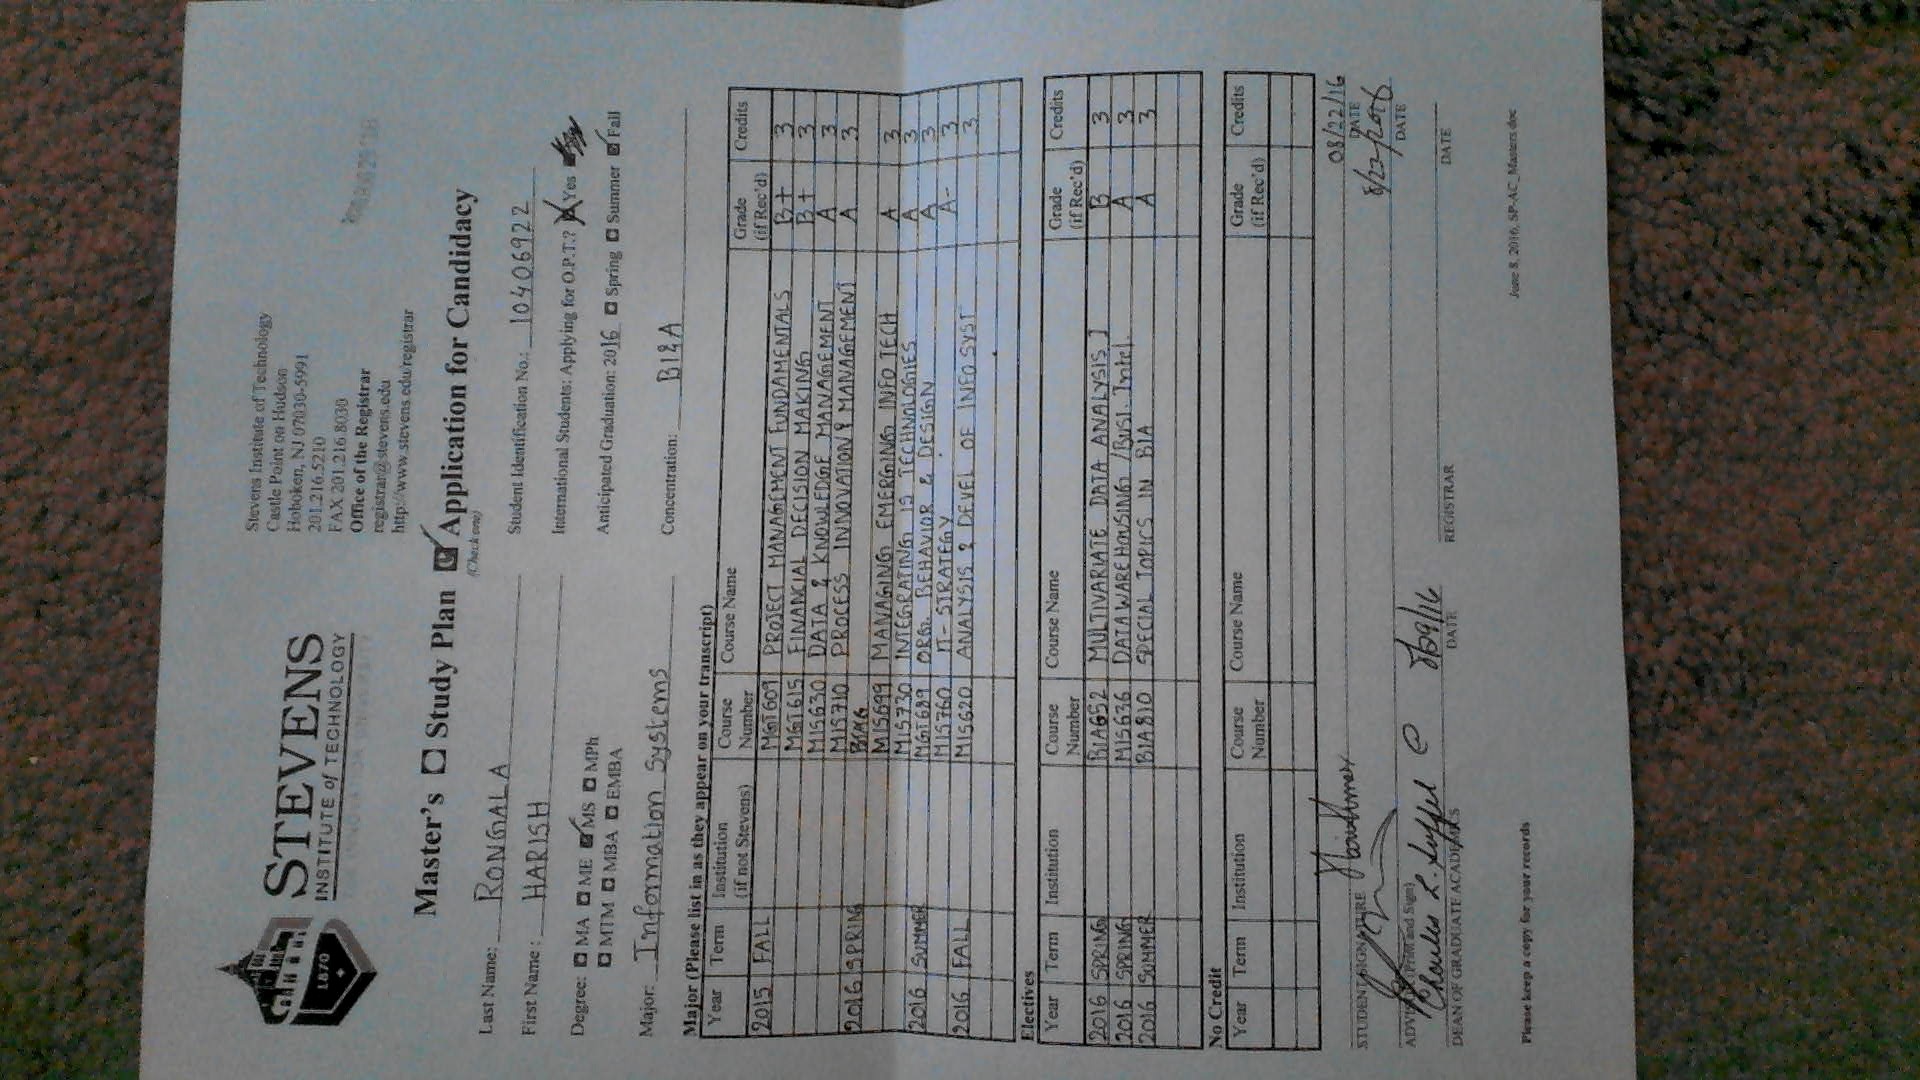 STEVENS
INSTITUTE of TECHNOLOGY
1870
Stevens Institute of Technology
Castle Point on Hudson
Hoboken, NJ 07030-5991
201.216.5210
FAX 201.216.8030
Office of the Registrar
registrar@stevens.edu
http://www.stevens.edu/registrar
Master's Study Plan Application for Candidacy
(Check one)
Last Name: RONGALA
Student Identification No.: 10406922
First Name : HARISH
International Students: Applying for O.P.T.? Yes
Degree: MA ME MS MPh
MTM MBA EMBA
Anticipated Graduation: 2016 Spring Summer Fall
Major: Information Systems
Concentration: BI&A
Major (Please list in as they appear on your transcript)
Year Term Institution (if not Stevens) Course Number Course Name Grade (if Rec'd) Credits
2015 FALL MGT609 PROJECT MANAGEMENT FUNDAMENTALS B+ 3
MGT615 FINANCIAL DECISION MAKING B+ 3
MIS630 DATA & KNOWLEDGE MANAGEMENT A 3
MIS710 PROCESS INNOVATION & MANAGEMENT A 3
2016 SPRING
MIS699 MANAGING EMERGING INFO TECH A 3
MIS730 INTEGRATING IS TECHNOLOGIES A 3
2016 SUMMER MGT689 ORG. BEHAVIOR & DESIGN A 3
MIS760 IT- STRATEGY A- 3
2016 FALL MIS620 ANALYSIS & DEVEL OF INFO SYST 3
Electives
Year Term Institution Course Number Course Name Grade (if Rec'd) Credits
2016 SPRING BIA652 MULTIVARIATE DATA ANALYSIS I B 3
2016 SPRING MIS636 DATAWAREHOUSING /Busi. Intel. A 3
2016 SUMMER BIA810 SPECIAL TOPICS IN BIA A 3
No Credit
Year Term Institution Course Number Course Name Grade (if Rec'd) Credits
08/22/16
STUDENT SIGNATURE DATE
8/22/2016
ADVISOR (Print and Sign) DATE
Charles L. Suffel 8/29/16
DEAN OF GRADUATE ACADEMICS DATE REGISTRAR DATE
Please keep a copy for your records
June 8, 2016, SP-AC_Masters.doc